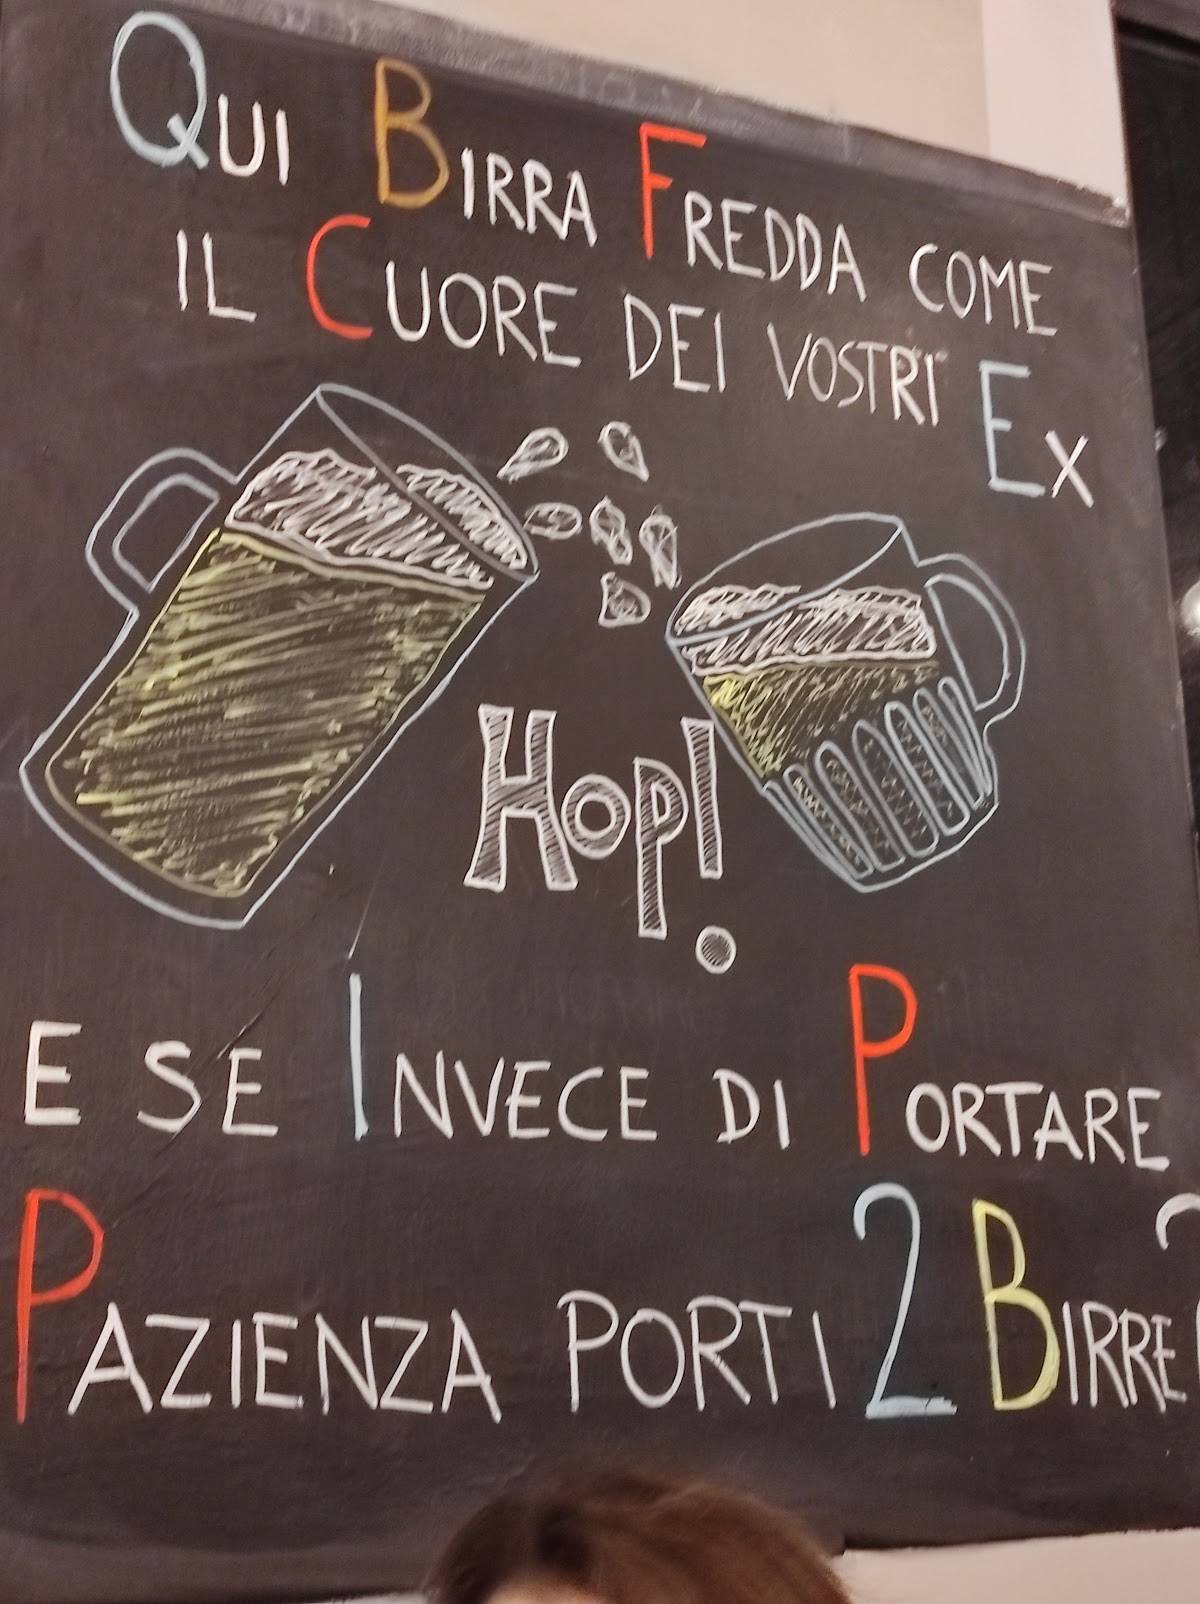 QUI BIRRA FREDDA COME
IL CUORE DEI VOSTRI EX
HOP!
E SE INVECE DI PORTARE
PAZIENZA PORTI 2 BIRRE?